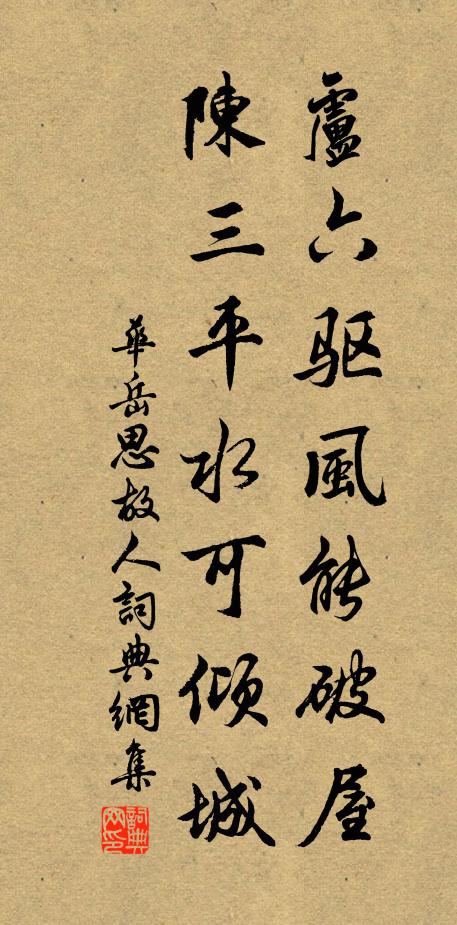 盧六驱風能破屋
陳三平水可傾城
華岳思故人詞典網集
詞典網印